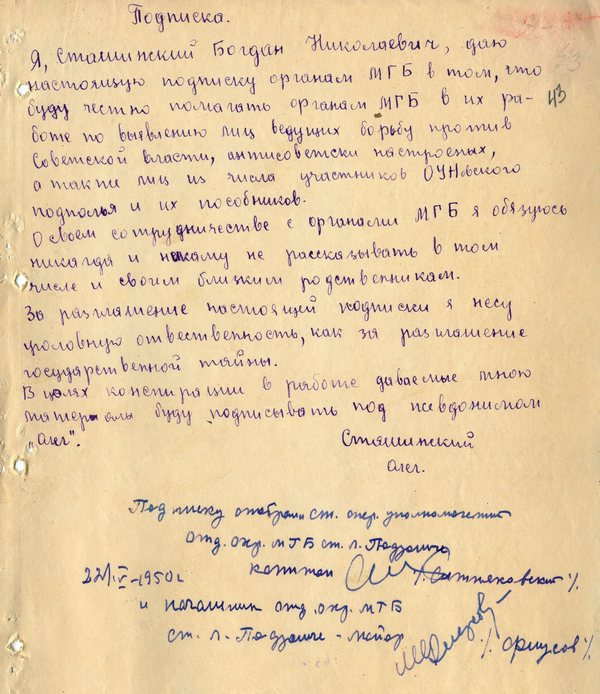 Подписка.
43
Я, Сташинский Богдан Николаевич, даю
настоящую подписку органам МГБ в том, что
буду честно помагать органам МГБ в их ра-
43
боте по выявлению лиц ведущих борьбу против
Советской власти, антисоветски настроеных,
а также лиц из числа участников ОУНовского
подполья и их пособников.
О своем сотрудничестве с органами МГБ я обязуюсь
никагда и никаму не рассказывать в том
числе и своим близким родственникам.
За разглашение настоящей подписки я несу
уголовную отвественность, как за разглашение
государственной тайны.
В целях конспирации в работе даваемые мною
материалы буду подписывать под псевдонимом
„Олег".
Сташинский
Олег.
Подписку отобрали ст. опер. уполномоченный
отд. охр. МГБ ст. Л. Подзамче
капитан Ситняковский
22/IV-1950г
и начальник отд. охр. МГБ
ст. Л. Подзамче - майор